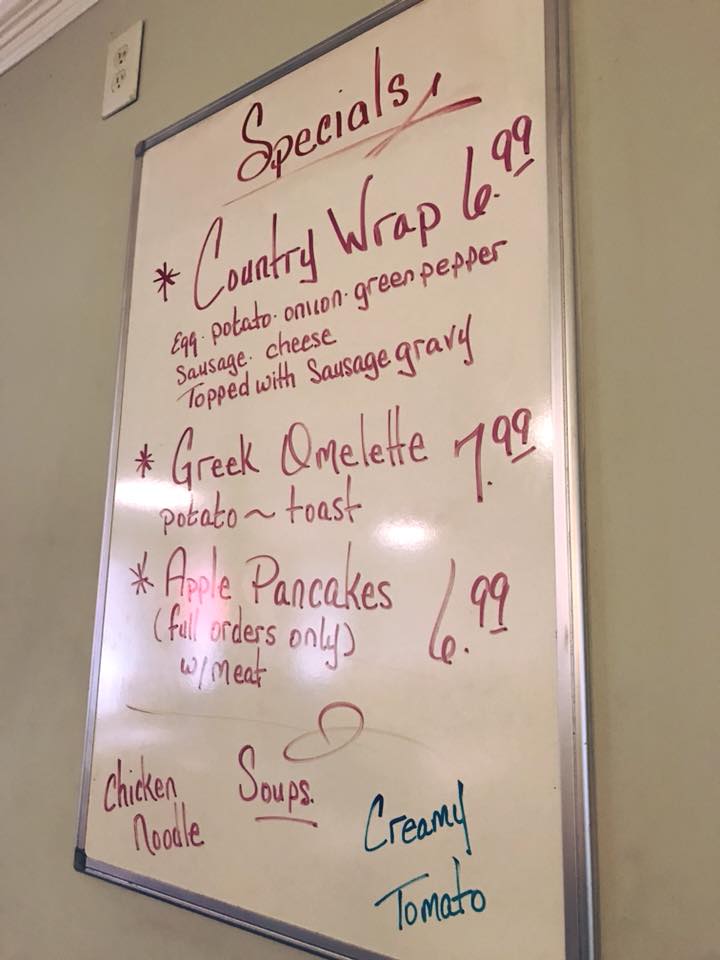 Specials
* Country Wrap 6.99
Egg. potato. onion. green pepper
Sausage. cheese
Topped with Sausage gravy
* Greek Omelette 7.99
potato ~ toast
* Apple Pancakes 6.99
(full orders only)
w/meat
Soups.
Chicken
Noodle
Creamy
Tomato